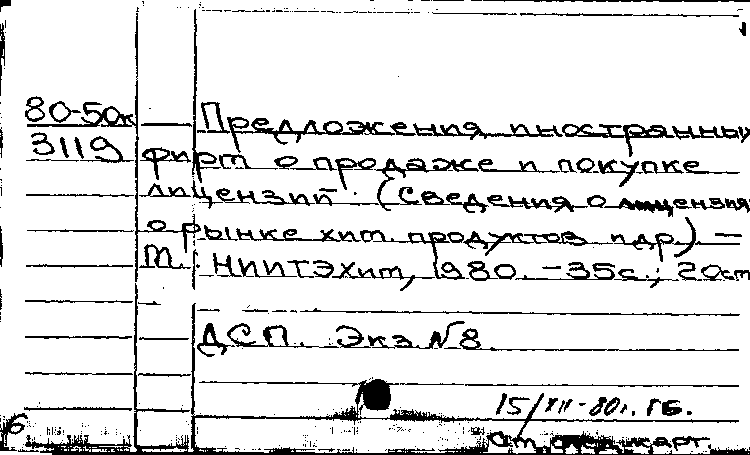 80-50к
3119
Предложения иностранных
фирм о продаже и покупке
лицензий. (Сведения о лицензиях
о рынке хим. продуктов и др.) —
М.: НИИТЭХим, 1980. - 35с.; 20см
ДСП. Экз №8.
15/XII-80г. ГБ.
6